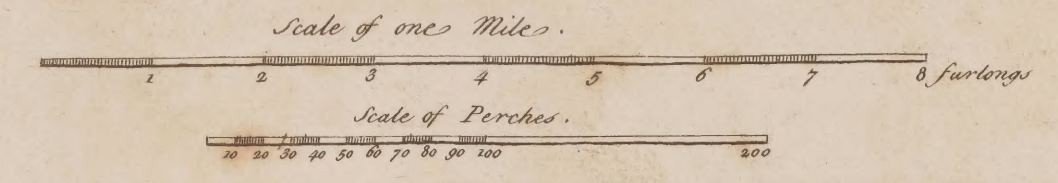 Scale of one Mile.
1 2 3 4 5 6 7 8 furlongs
Scale of Perches.
10 20 30 40 50 60 70 80 90 100 200